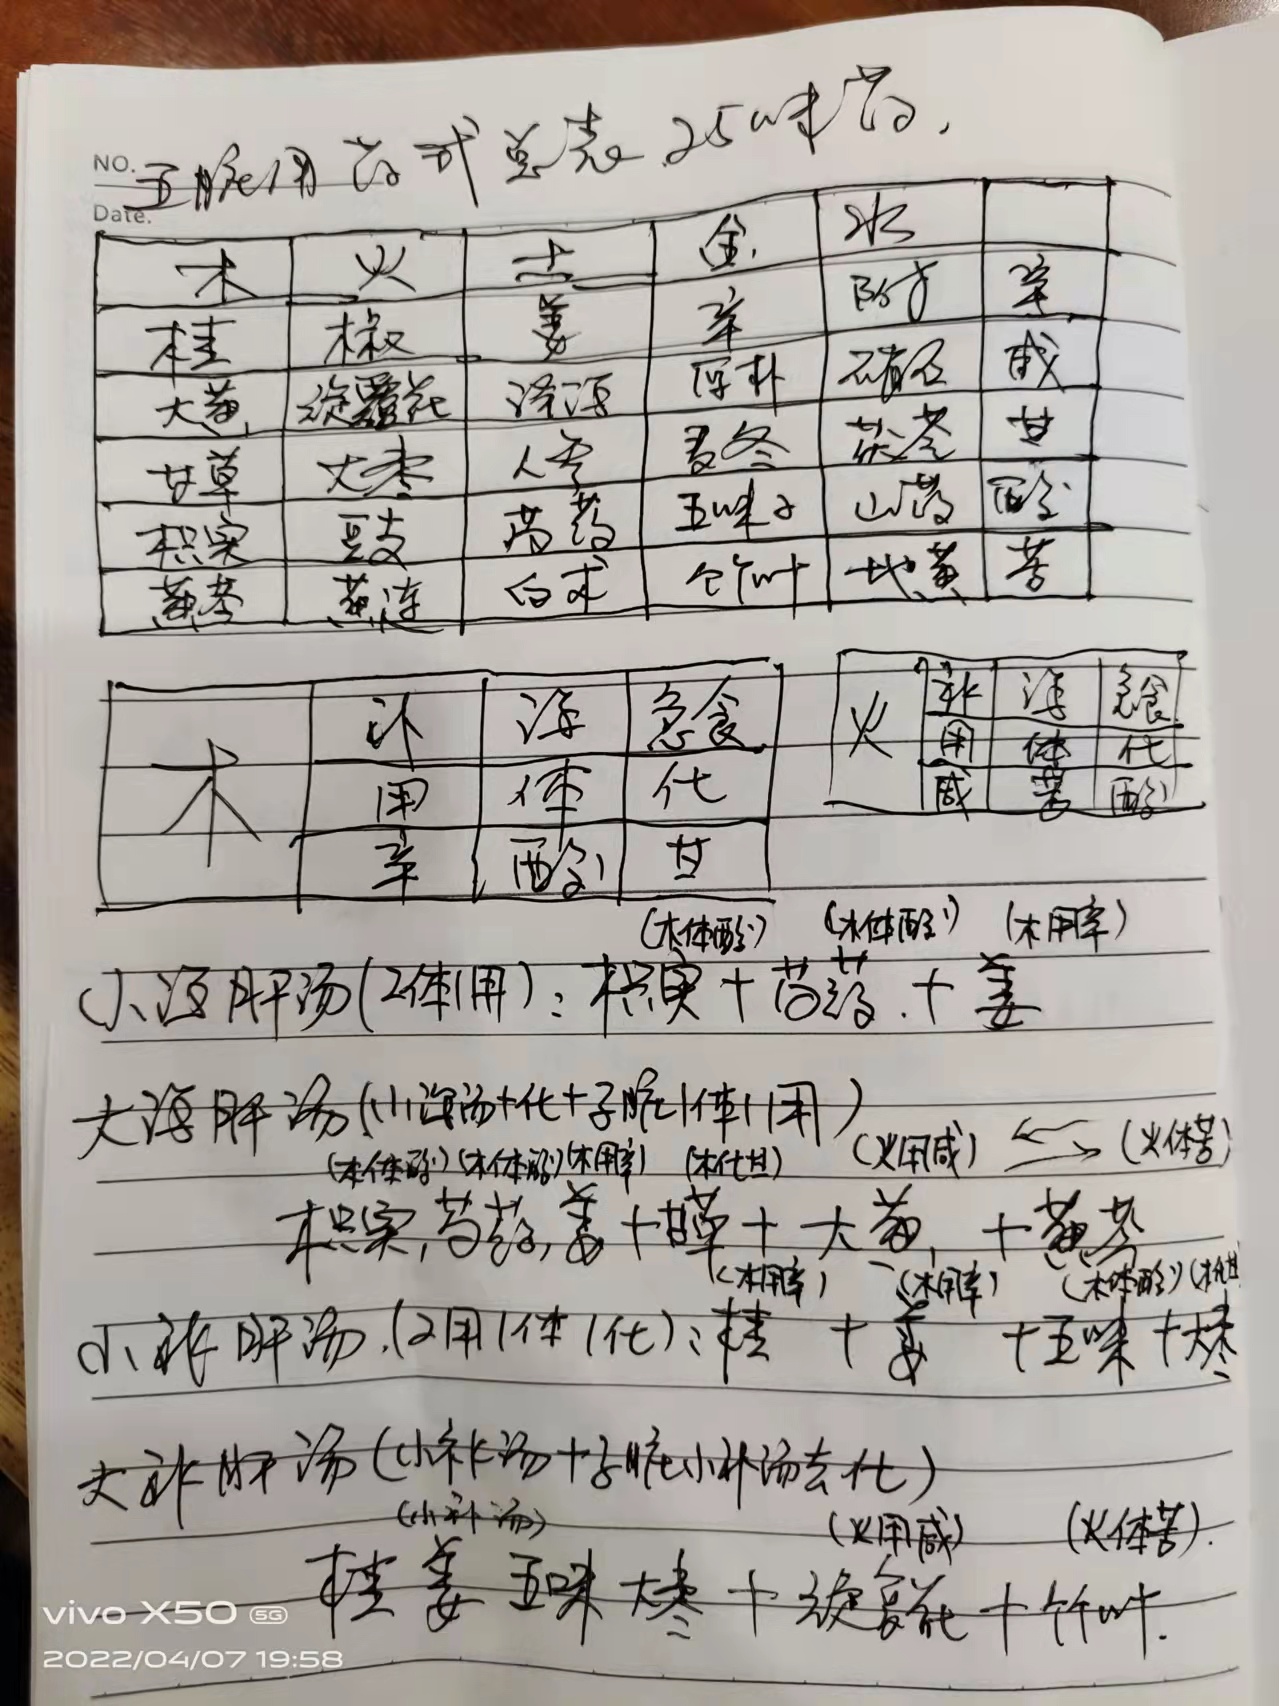 NO.
Date.
五脏用药式总表.25味药.
木 火 土 金 水
桂 椒 姜 辛 附子 辛
大黄 旋覆花 泽泻 厚朴 硝石 咸
甘草 大枣 人参 麦冬 茯苓 甘
枳实 豉 芍药 五味子 山药 酸
黄芩 黄连 白术 竹叶 地黄 苦
木 补 泻 急食
用 体 代
辛 酸 甘
火 补 泻 急食
用 体 代
咸 苦 酸
(木体酸) (木体酸) (木用辛)
小泻肝汤(2体1用):枳实+芍药.+姜
大泻肝汤(小泻汤+化+子脏1体1用)
(木体酸)(木体酸)(木用辛) (木化甘) (火用咸) (火体苦)
枳实,芍药,姜+甘草+大黄,+黄芩
(木用辛) (木用辛) (木体酸)(木化甘
小补肝汤.(2用1体1化):桂+姜+五味+大枣
大补肝汤(小补汤+子脏小补汤去化)
(小补汤) (火用咸) (火体苦).
桂 姜 五味 大枣+旋覆花+竹叶.
vivo X50 5G
2022/04/07 19:58